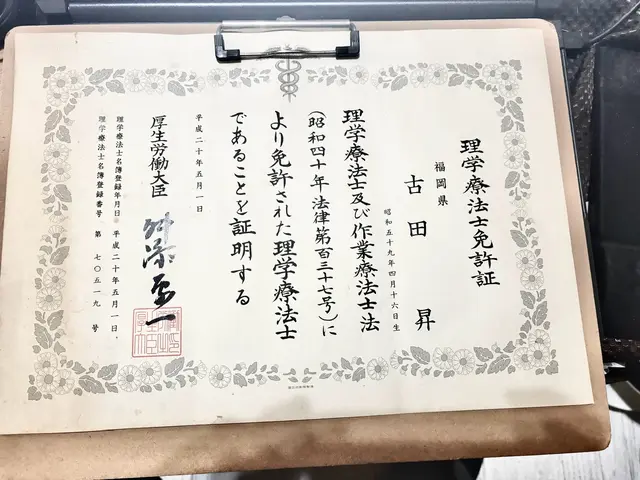 理学療法士免許証
福岡県
古田 昇
昭和五十九年四月十六日生
理学療法士及び作業療法士法
(昭和四十年法律第百三十七号)に
より免許された理学療法士
であることを証明する
平成二十年五月一日
厚生労働大臣 舛添要一
理学療法士名簿登録年月日 平成二十年五月一日
理学療法士名簿登録番号 第 七〇五一九 号